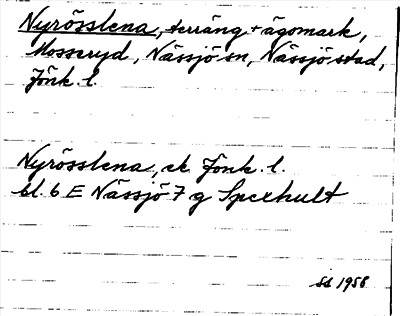 Nyrösslena, terräng + ägomark,
Mosseryd, Nässjö sn, Nässjö stad,
Jönk. l.
Nyrösslena, ek Jönk. l.
bl. 6 E Nässjö 7 g Spexhult
Sd 1958